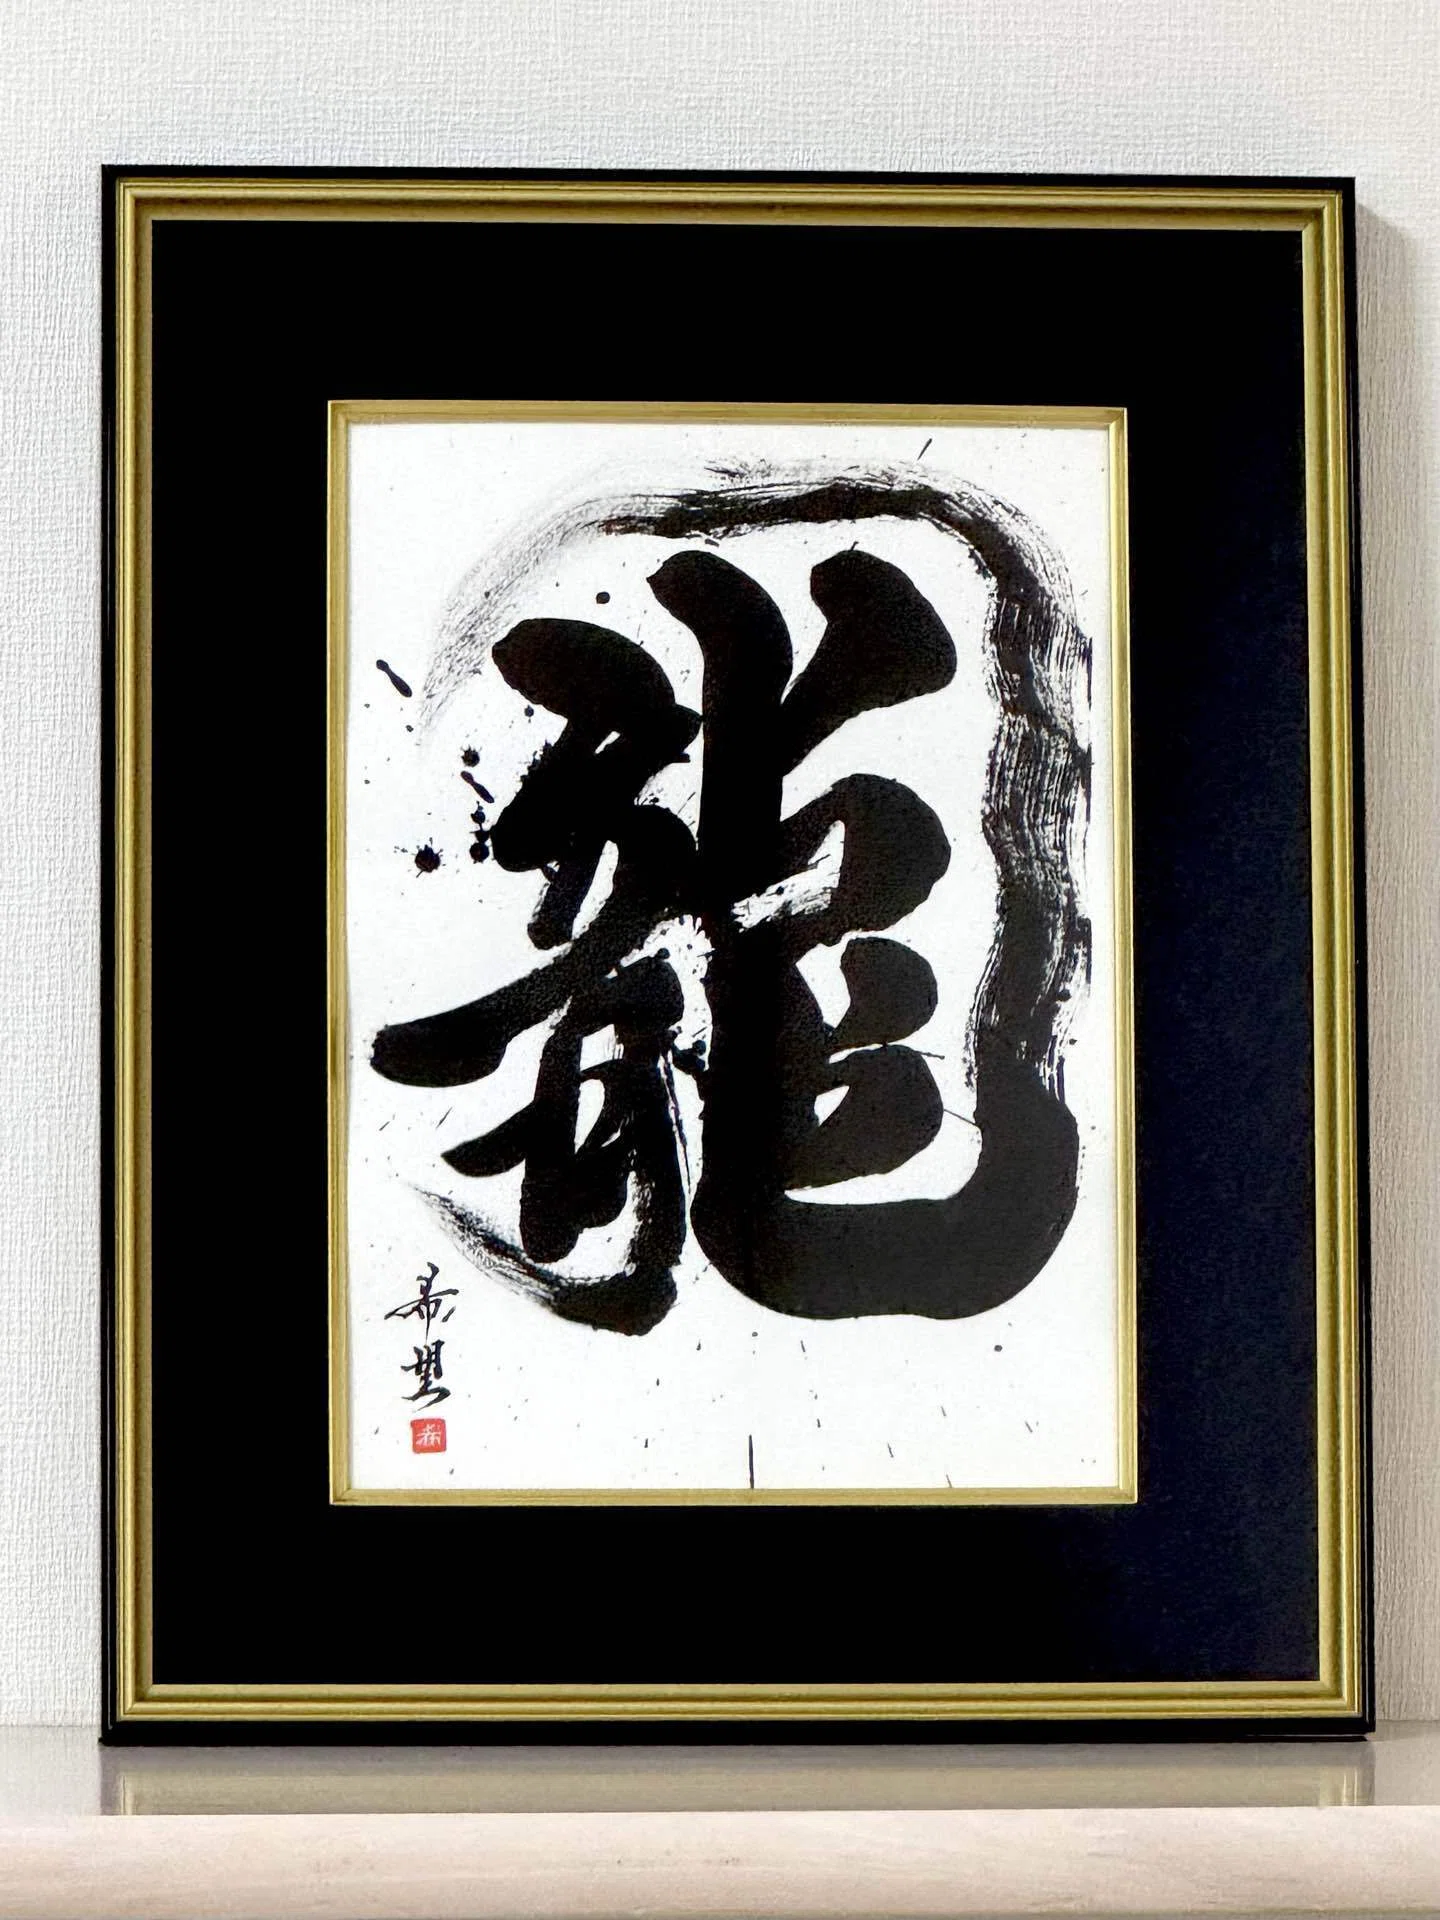 龍
希望
希